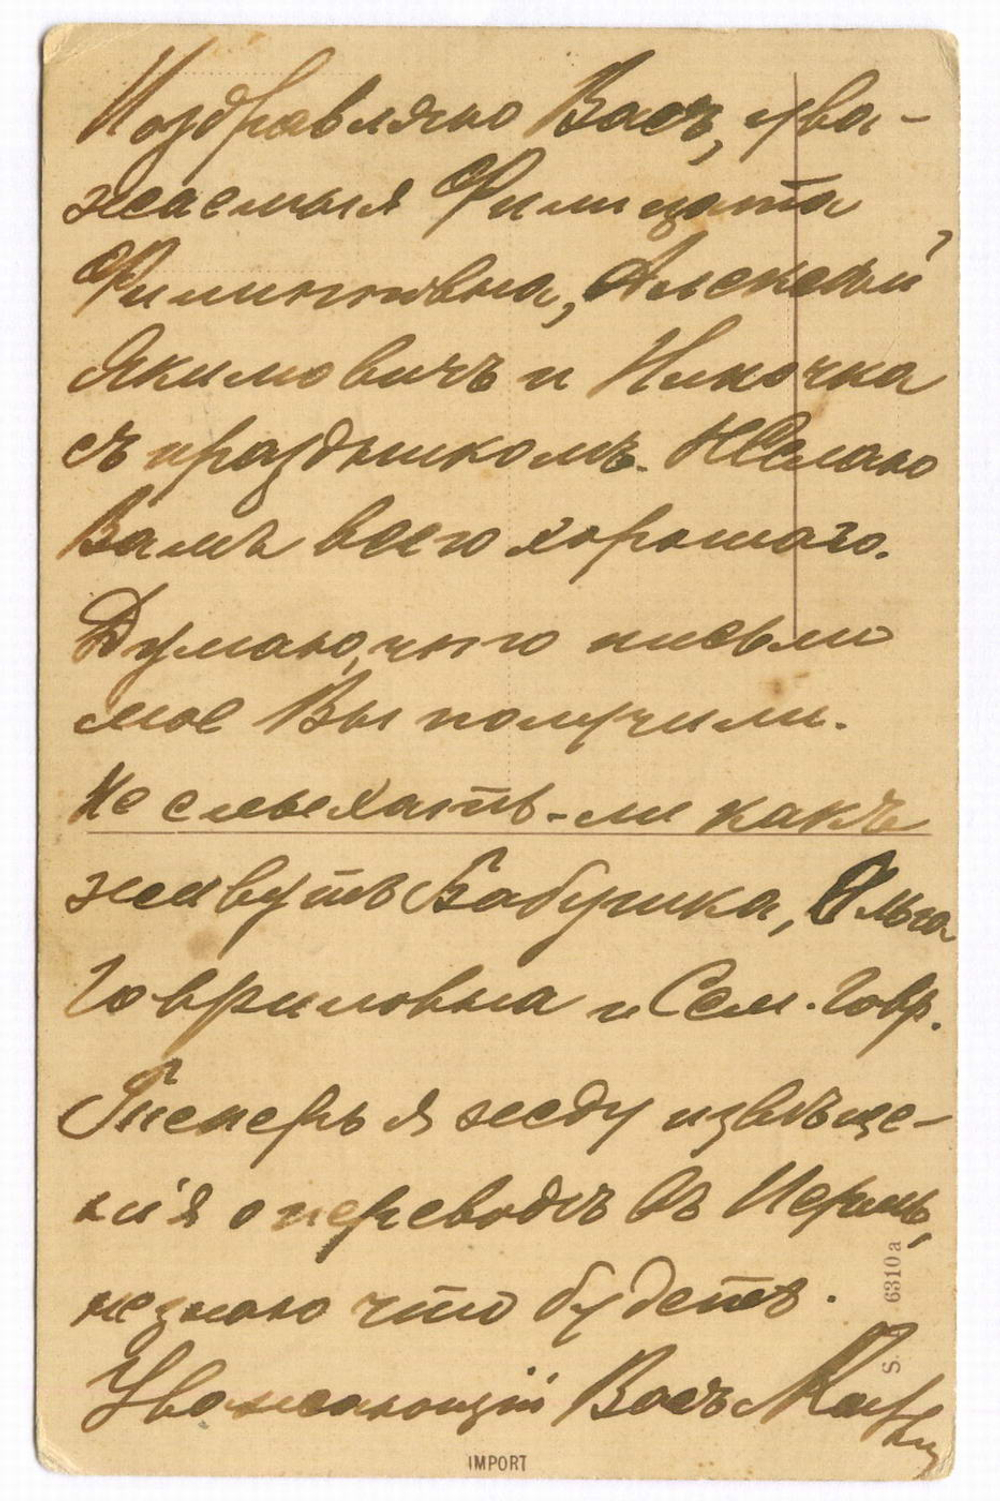 Поздравляю Васъ, ува-
жаемыя Филицата
Филипповна, Алексѣй
Якимовичъ и Ниночка
съ праздникомъ. Желаю
Вамъ всего хорошаго.
Думаю, что письмо
мое Вы получили.
Не слыхать-ли какъ
живутъ Бабушка, Ольга
Гавриловна и Сем. Гавр.
Теперь я жду извѣще-
нія о переводѣ въ Пермь,
не знаю что будетъ.
Уважающій Васъ
S. 6310 a
IMPORT